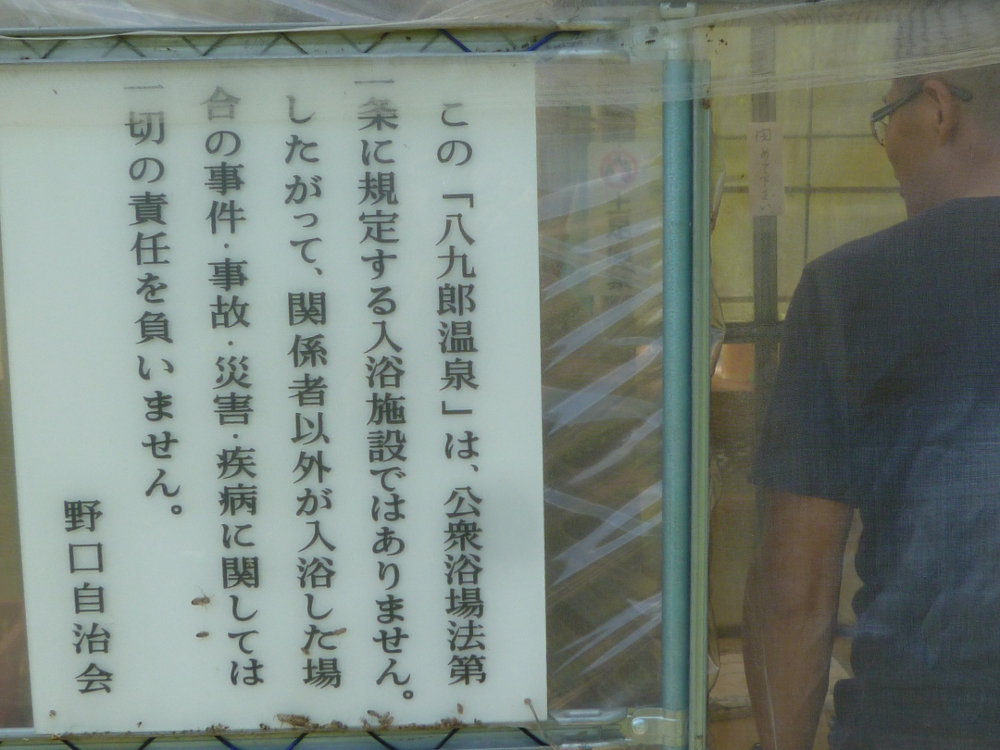 この「八九郎温泉」は、公衆浴場法第
一条に規定する入浴施設ではありません。
したがって、関係者以外が入浴した場
合の事件・事故・災害・疾病に関しては
一切の責任を負いません。
野口自治会
閉めて下さい